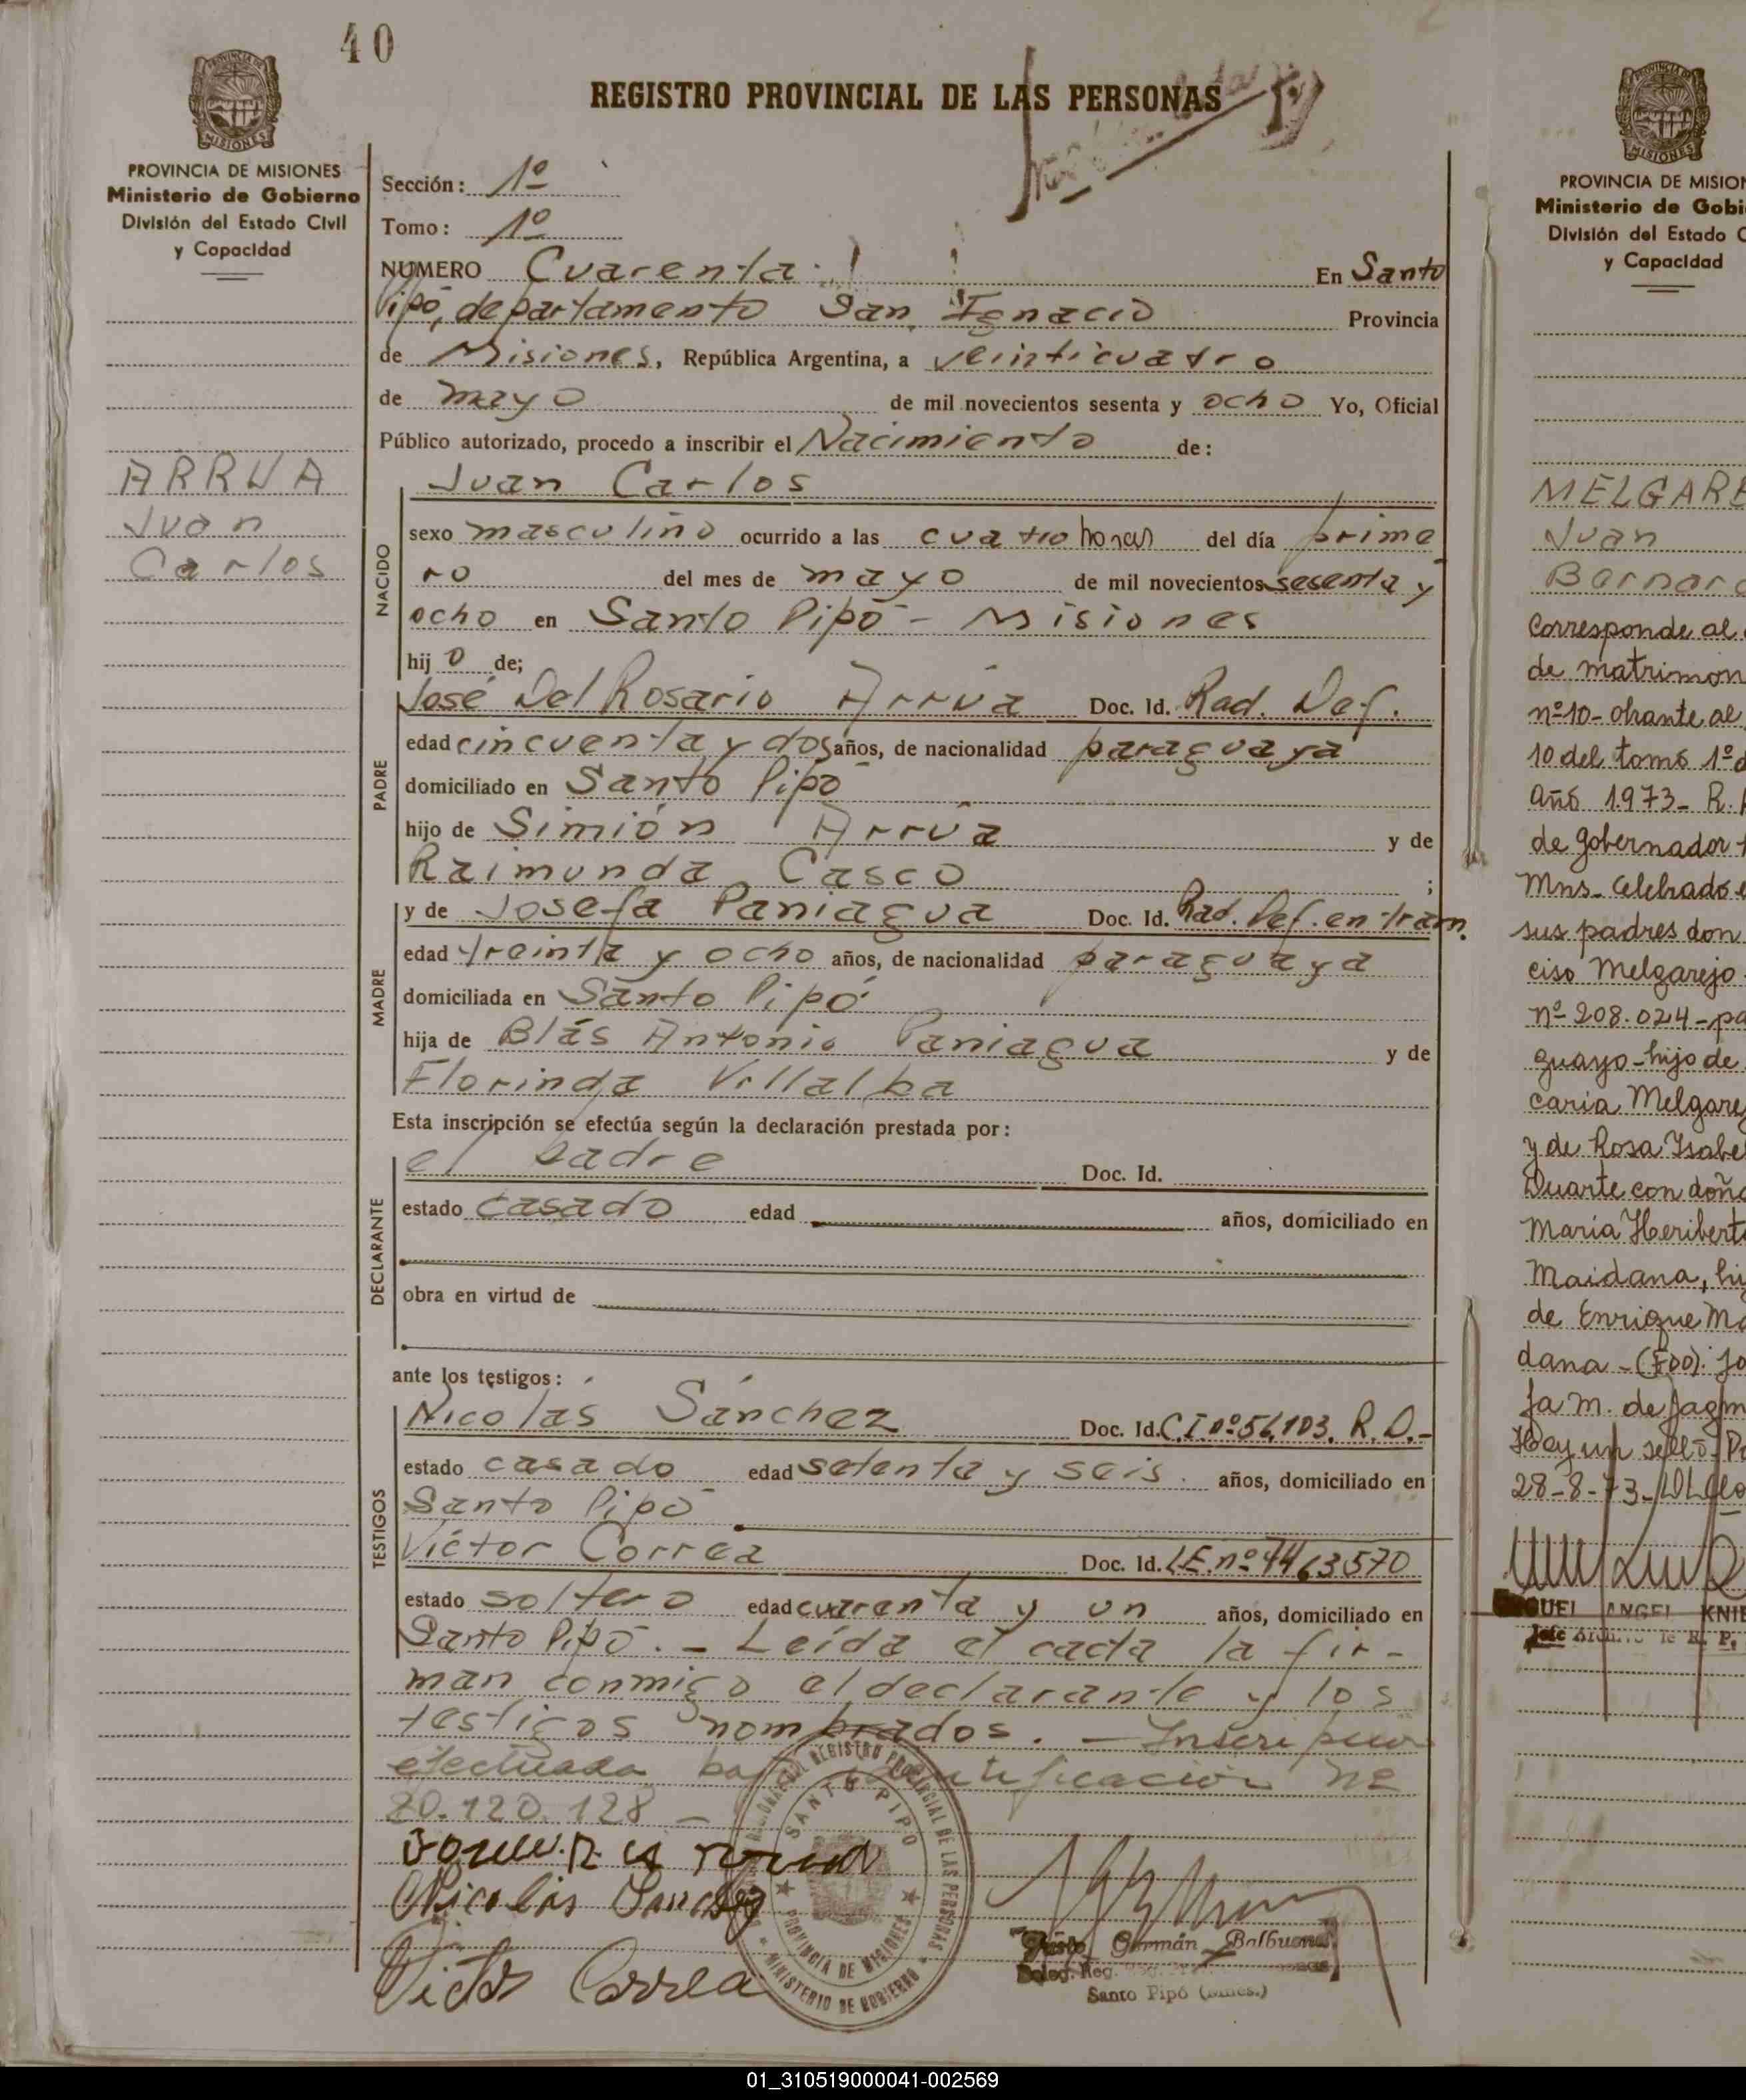 40
REGISTRO PROVINCIAL DE LAS PERSONAS
PROVINCIA DE MISIONES
Ministerio de Gobierno
División del Estado Civil
y Capacidad
ARRUA
Juan
Carlos
Sección: 1º
Tomo: 1º
NUMERO Cuarenta. En Santo
Pipó, departamento San Ignacio Provincia
de Misiones, República Argentina, a veinticuatro
de mayo de mil novecientos sesenta y ocho Yo, Oficial
Público autorizado, procedo a inscribir el Nacimiento de:
Juan Carlos
NACIDO
sexo masculino ocurrido a las cuatro horas del día prime
ro del mes de mayo de mil novecientos sesenta y
ocho en Santo Pipó - Misiones
hijo de;
PADRE
José Del Rosario Arrúa Doc. Id. Rad. Def.
edad cincuenta y dos años, de nacionalidad paraguaya
domiciliado en Santo Pipó
hijo de Simión Arrúa y de
Raimunda Casco ;
MADRE
y de Josefa Paniagua Doc. Id. Rad. Def. en tram.
edad treinta y ocho años, de nacionalidad paraguaya
domiciliada en Santo Pipó
hija de Blás Antonio Paniagua y de
Florinda Villalba
Esta inscripción se efectúa según la declaración prestada por:
DECLARANTE
el padre Doc. Id.
estado casado edad años, domiciliado en
obra en virtud de
ante los testigos:
TESTIGOS
Nicolás Sánchez Doc. Id. C.I nº 56.103. R.D.-
estado casado edad setenta y seis. años, domiciliado en
Santo Pipó
Víctor Correa Doc. Id. L.E. nº 4463570
estado soltero edad cuarenta y un años, domiciliado en
Santo Pipó. - Leída el cacta la fir-
man conmigo el declarante y los
testigos nombrados. - Inscripción
efectuada bajo identificación Nº
20.120.128 -
Nicolás Sanchez
Victor Correa
REGISTRO PROVINCIAL DE LAS PERSONAS
SANTO PIPO
PROVINCIA DE MISIONES
MINISTERIO DE GOBIERNO
Justo Germán Balbuena
Deleg. Reg.
Santo Pipó (Mnes.)
PROVINCIA DE MISION
Ministerio de Gobi
División del Estado C
y Capacidad
MELGARE
Juan
Bernard
Corresponde al
de matrimon
nº 10- obrante al
10 del tomo 1º d
año 1973- R.
de gobernador
Mns- Celebrado e
sus padres don
ciso Melgarejo
nº 208.024-pa
guayo-hijo de
caria Melgare
y de Rosa Isabel
Duarte con doña
Maria Heriberta
Maidana, hi
de Enrique Ma
dana - (FDO). Jo
fa M. de Jagm
Hay un sello- P
28-8-73-
MIGUEL ANGEL KNIE
Jefe Archivo de R. P.
01_310519000041-002569